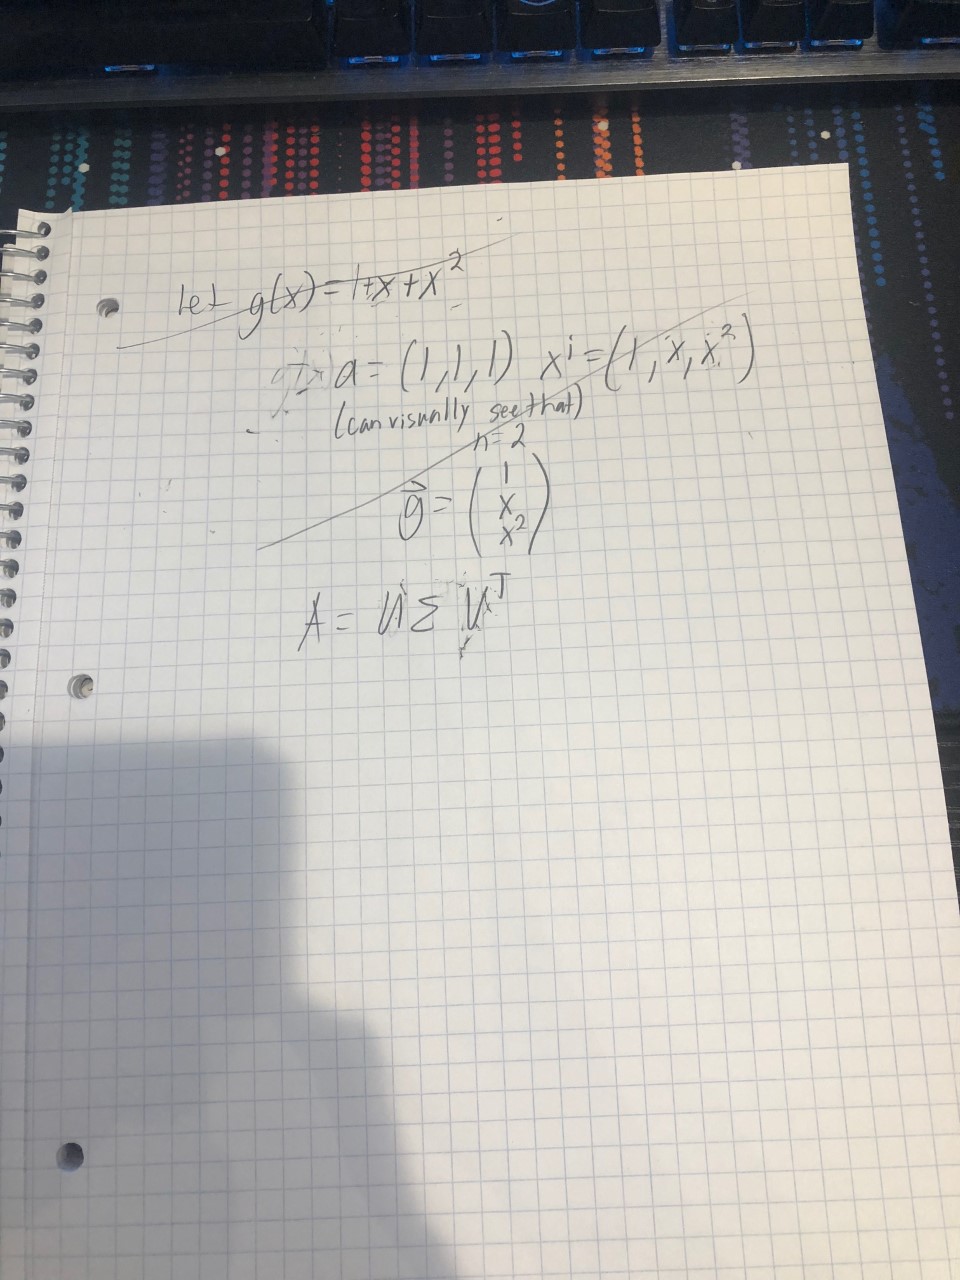 let g(x) = 1+x+x²
a = (1,1,1) xⁱ = (1, x, x²)
(can visually see that)
n = 2
g⃗ = (1
x
x²)
A = U Σ V^T